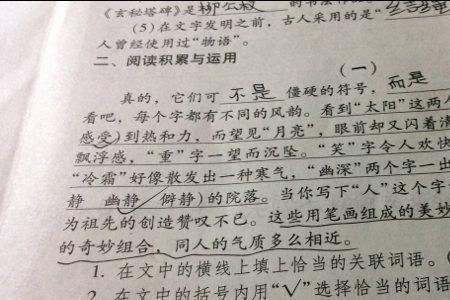 《玄秘塔碑》是柳公权
(5)在文字发明之前，古人采用的是“
人曾经使用过“物语”。
二、阅读积累与运用
(一)
真的，它们可 不是 僵硬的符号，而是
看吧，每个字都有不同的风韵。看到“太阳”这两
感受)到热和力，而望见“月亮”，眼前却又闪着
飘浮感，“重”字一望而沉坠。“笑”字令人欢快
“冷霜”好像散发出一种寒气，“幽深”两个字一出
静 幽静√ 僻静)的院落。当你写下“人”这个字
为祖先的创造赞叹不已。这些用笔画组成的美妙
的奇妙组合，同人的气质多么相近。
1. 在文中的横线上填上恰当的关联词语。(
2. 在文中的括号内用“√”选择恰当的词语